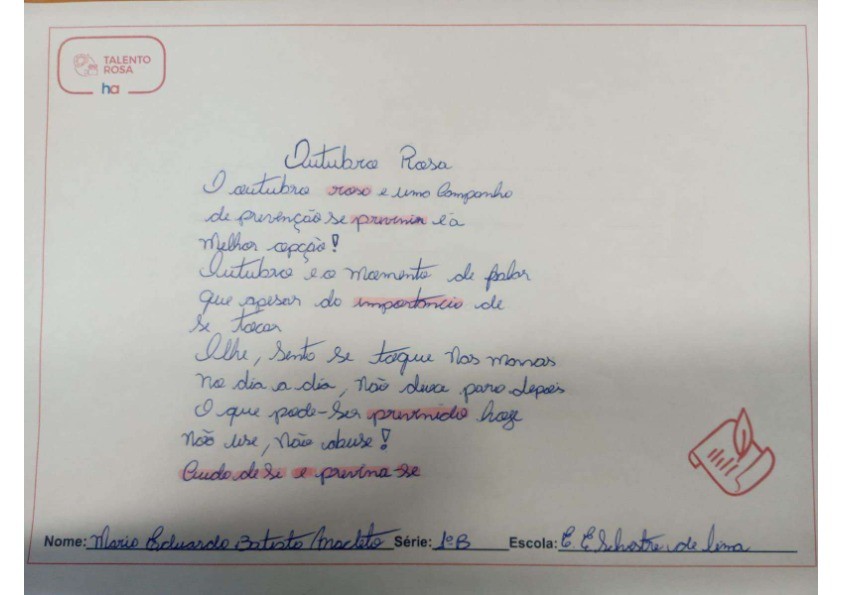 TALENTO
ROSA
ha
Outubro Rosa
O outubro rosa e uma Campanha
de prevenção se previnir é a
Melhor opção!
Outubro e o momento de falar
que apesar da importância de
se tocar
Olhe, Sente se toque Nas mamas
No dia a dia, Não deixe para depois
O que pode-Ser previnido hoje
Não use, Não abuse!
Cuida de Si e previna-se
Nome: Maria Eduarda Batista Anacleto Série: 1º B Escola: E. E Silvestre de lima